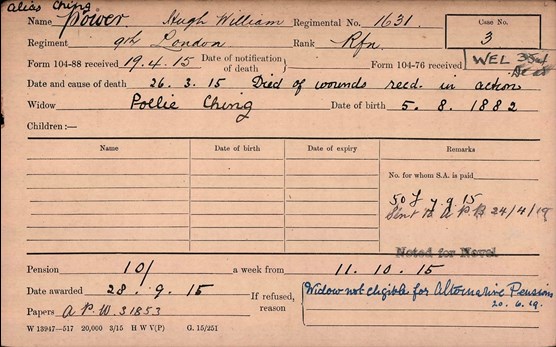 alias Ching
Name Power Hugh William Regimental No. 1631. Case No. 3
Regiment 9th London Rank Rfn.
Form 104-88 received 19.4.15 Date of notification of death Form 104-76 received WEL
Date and cause of death 26.3.15 Died of wounds recd. in action
Widow Pollie Ching Date of birth 5.8.1882
Children:—
Name Date of birth Date of expiry Remarks
No. for whom S.A. is paid
Sent to A P B 24/4/19
Noted for Novel
Pension 10/ a week from 11.10.15
Date awarded 28.9.15 If refused, reason Widow not eligible for Alternative Pension
20.6.19.
Papers A.P.W. 31853
W 13947—517 20,000 3/15 H W V(P) G. 15/251